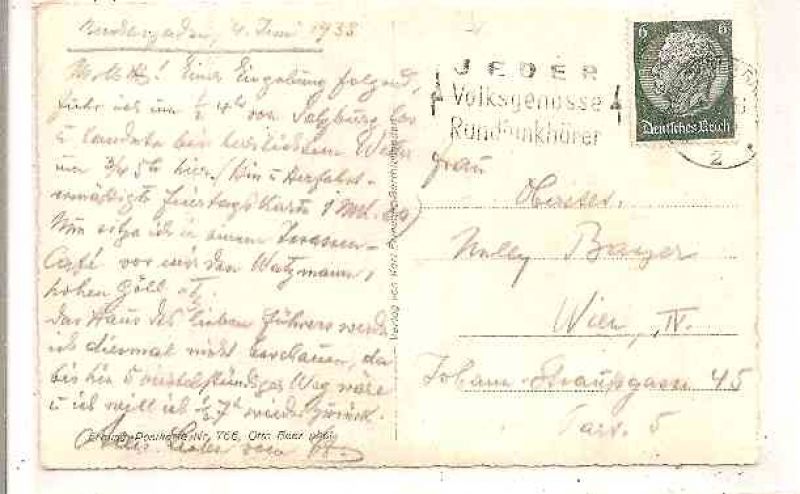 Berchtesgaden, 4. Juni 1938
M. l. N.! Einer Eingebung folgend,
fuhr ich um 1/2 4h von Salzburg los
u. landete bei herrlichstem Wetter
um 3/4 5h hier. (Hin u Herfahrt-
ermäßigte Feiertagskarte 1 M
Nun sitze ich in einem Terassen-
Café vor mir den Watzmann,
hohen Göll
Das Haus des lieben Führers werde
ich diesmal nicht beschauen, da
bis hin 5 viertelstündiger Weg wäre
u ich will ich 1/2 7h wieder zurück.
Alles Liebe von
Postkarte Nr. 766, Otto Baer phot.
Verlag von Karl Berchtesgaden
JEDER
Volksgenosse
Rundfunkhörer
6 6
Deutsches Reich
2
Frau
Nelly Bayer
Wien, IV.
Johann-Straußgasse 45
Part. 5